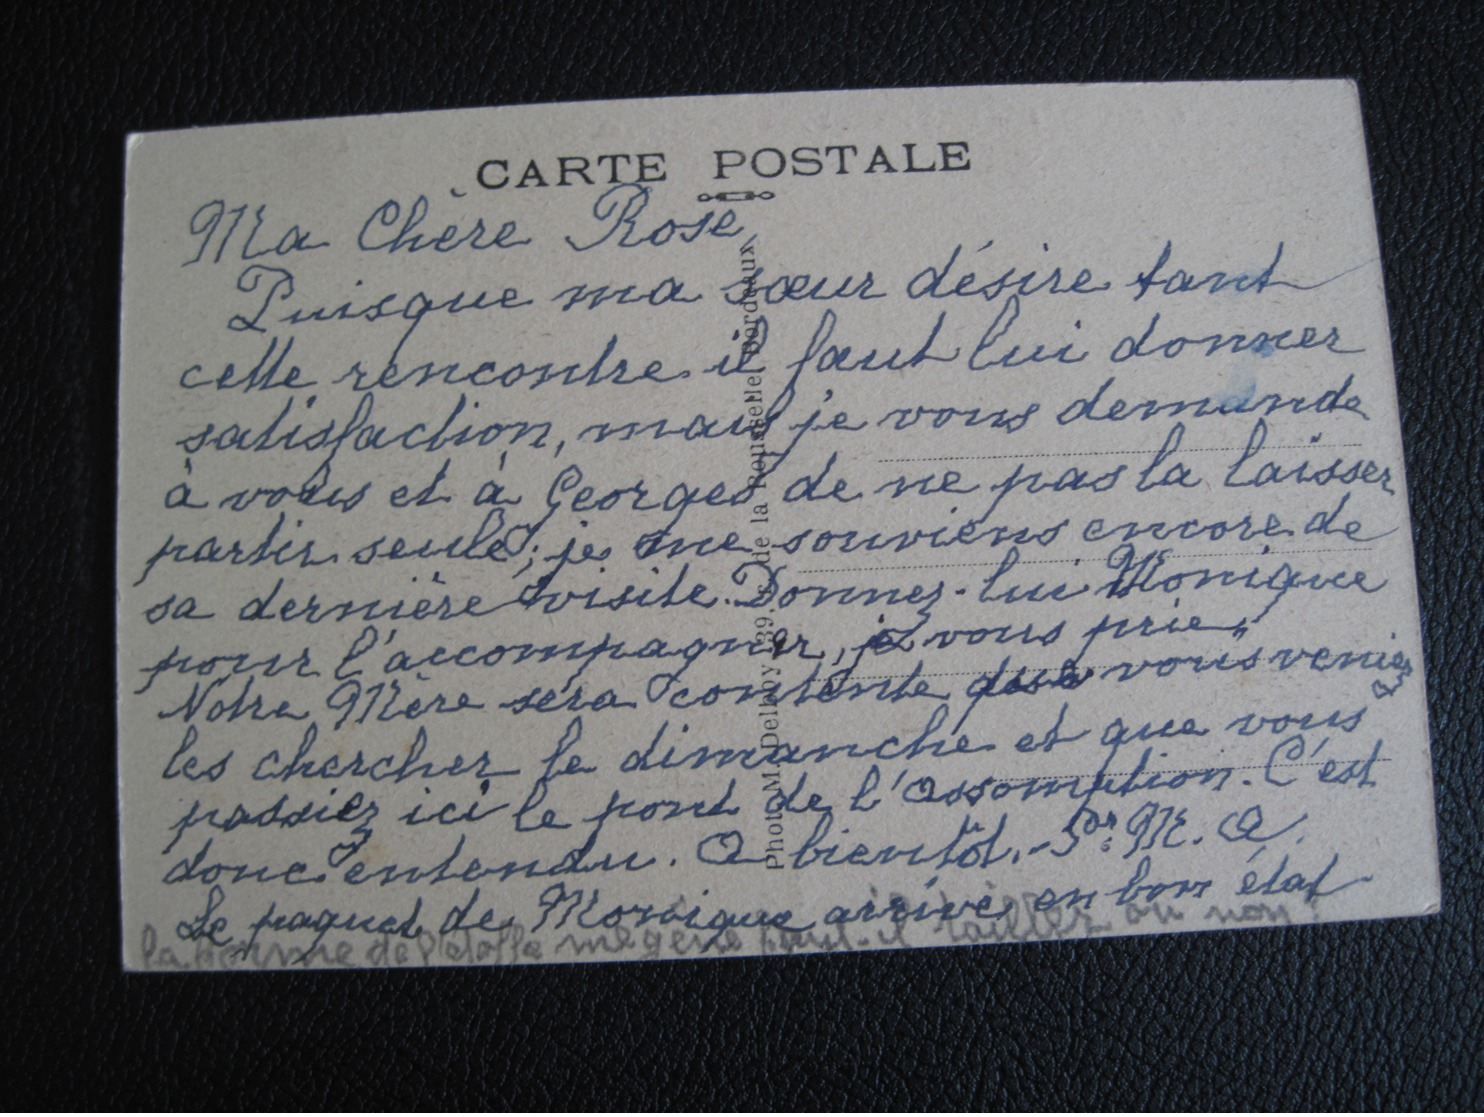 CARTE POSTALE
Ma Chère Rose,
Puisque ma sœur désire tant
cette rencontre il faut lui donner
satisfaction, mais je vous demande
à vous et à Georges de ne pas la laisser
partir seule; je me souviens encore de
sa dernière visite. Donnez-lui Monique
pour l'accompagner, je vous prie,
Notre Mère sera contente que vous veniez
les chercher le dimanche et que vous
passiez ici le pont de l'Assomption. C'est
donc entendu. A bientôt. Sr. M. A.
Le paquet de Monique arrive en bon état
la forme de l'étoffe me gêne faut-il tailler ou non?
Phot. M. Delboy, 39, r. de la Rousselle, Bordeaux